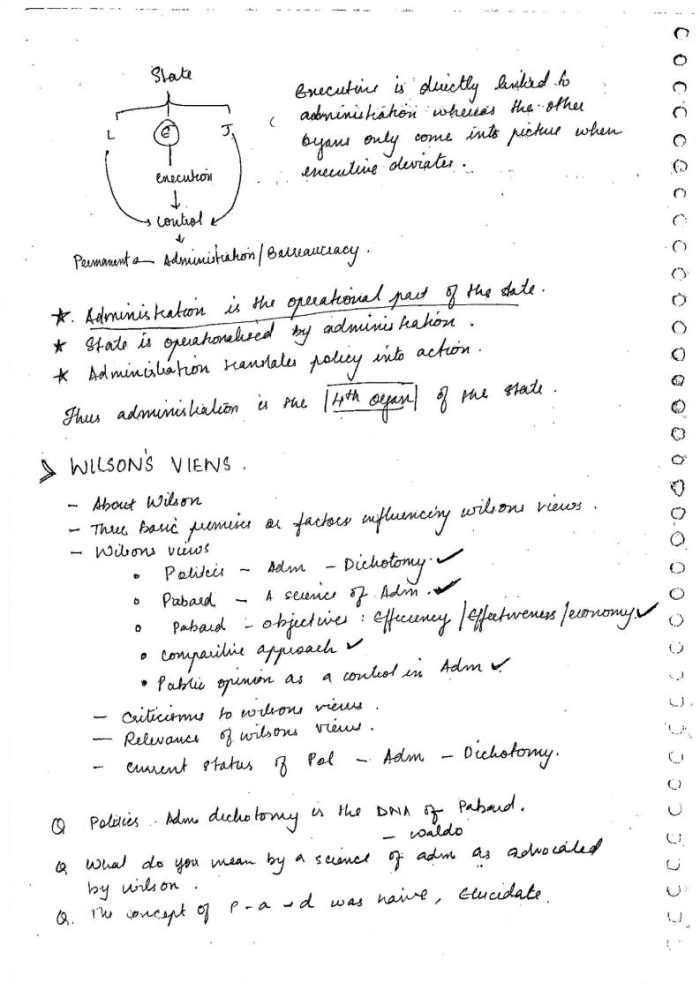 State
L E J
execution
control
Permanent Administration/Bureaucracy.
Executive is directly linked to
administration whereas the other
organs only come into picture when
executive deviates.
★. Administration is the operational part of the state.
★ State is operationalised by administration.
★ Administration translates policy into action.
Thus administration is the |4th organ| of the state.
WILSON'S VIEWS.
- About Wilson
- Three basic premises or factors influencing wilsons views.
- Wilsons views
• Politics - Adm - Dichotomy. ✓
• Pabad - A science of Adm. ✓
• Pabad - objectives : Efficiency/Effectiveness/economy. ✓
• comparitive approach ✓
• Public opinion as a control in Adm ✓
- Criticisms to wilsons views.
- Relevance of wilsons views.
- current status of Pol - Adm - Dichotomy.
Q Politics - Adm dichotomy is the DNA of Pabad.
- waldo
Q What do you mean by a science of adm as advocated
by wilson.
Q. The concept of P-a-d was naive, Elucidate.